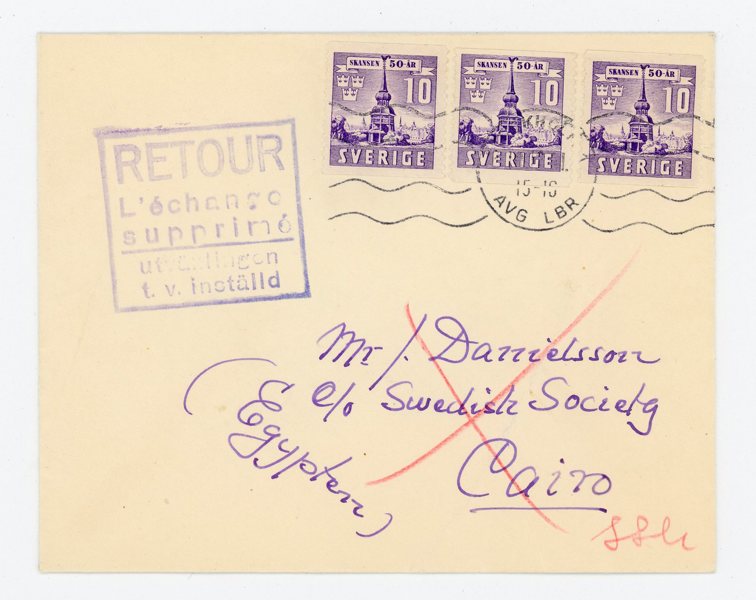 SKANSEN 50-ÅR
10
SVERIGE
SKANSEN 50-ÅR
10
SVERIGE
SKANSEN 50-ÅR
10
SVERIGE
15-16
AVG LBR
RETOUR
L'échange
supprimé
utväxlingen
t. v. inställd
Mr J. Danielsson
c/o Swedish Society
Cairo
(Egypten)